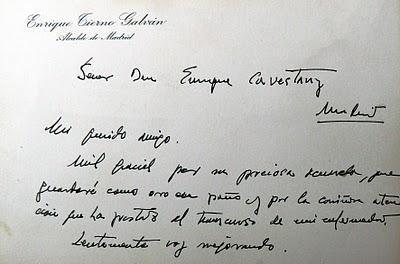 Enrique Tierno Galván
Alcalde de Madrid
Señor Don Enrique Cavestany
Madrid
Mi querido amigo.
Mil gracias por su preciosa acuarela, que
guardaré como oro en paño y por la cariñosa aten
ción que ha prestado al transcurso de mi enfermedad.
Lentamente voy mejorando.